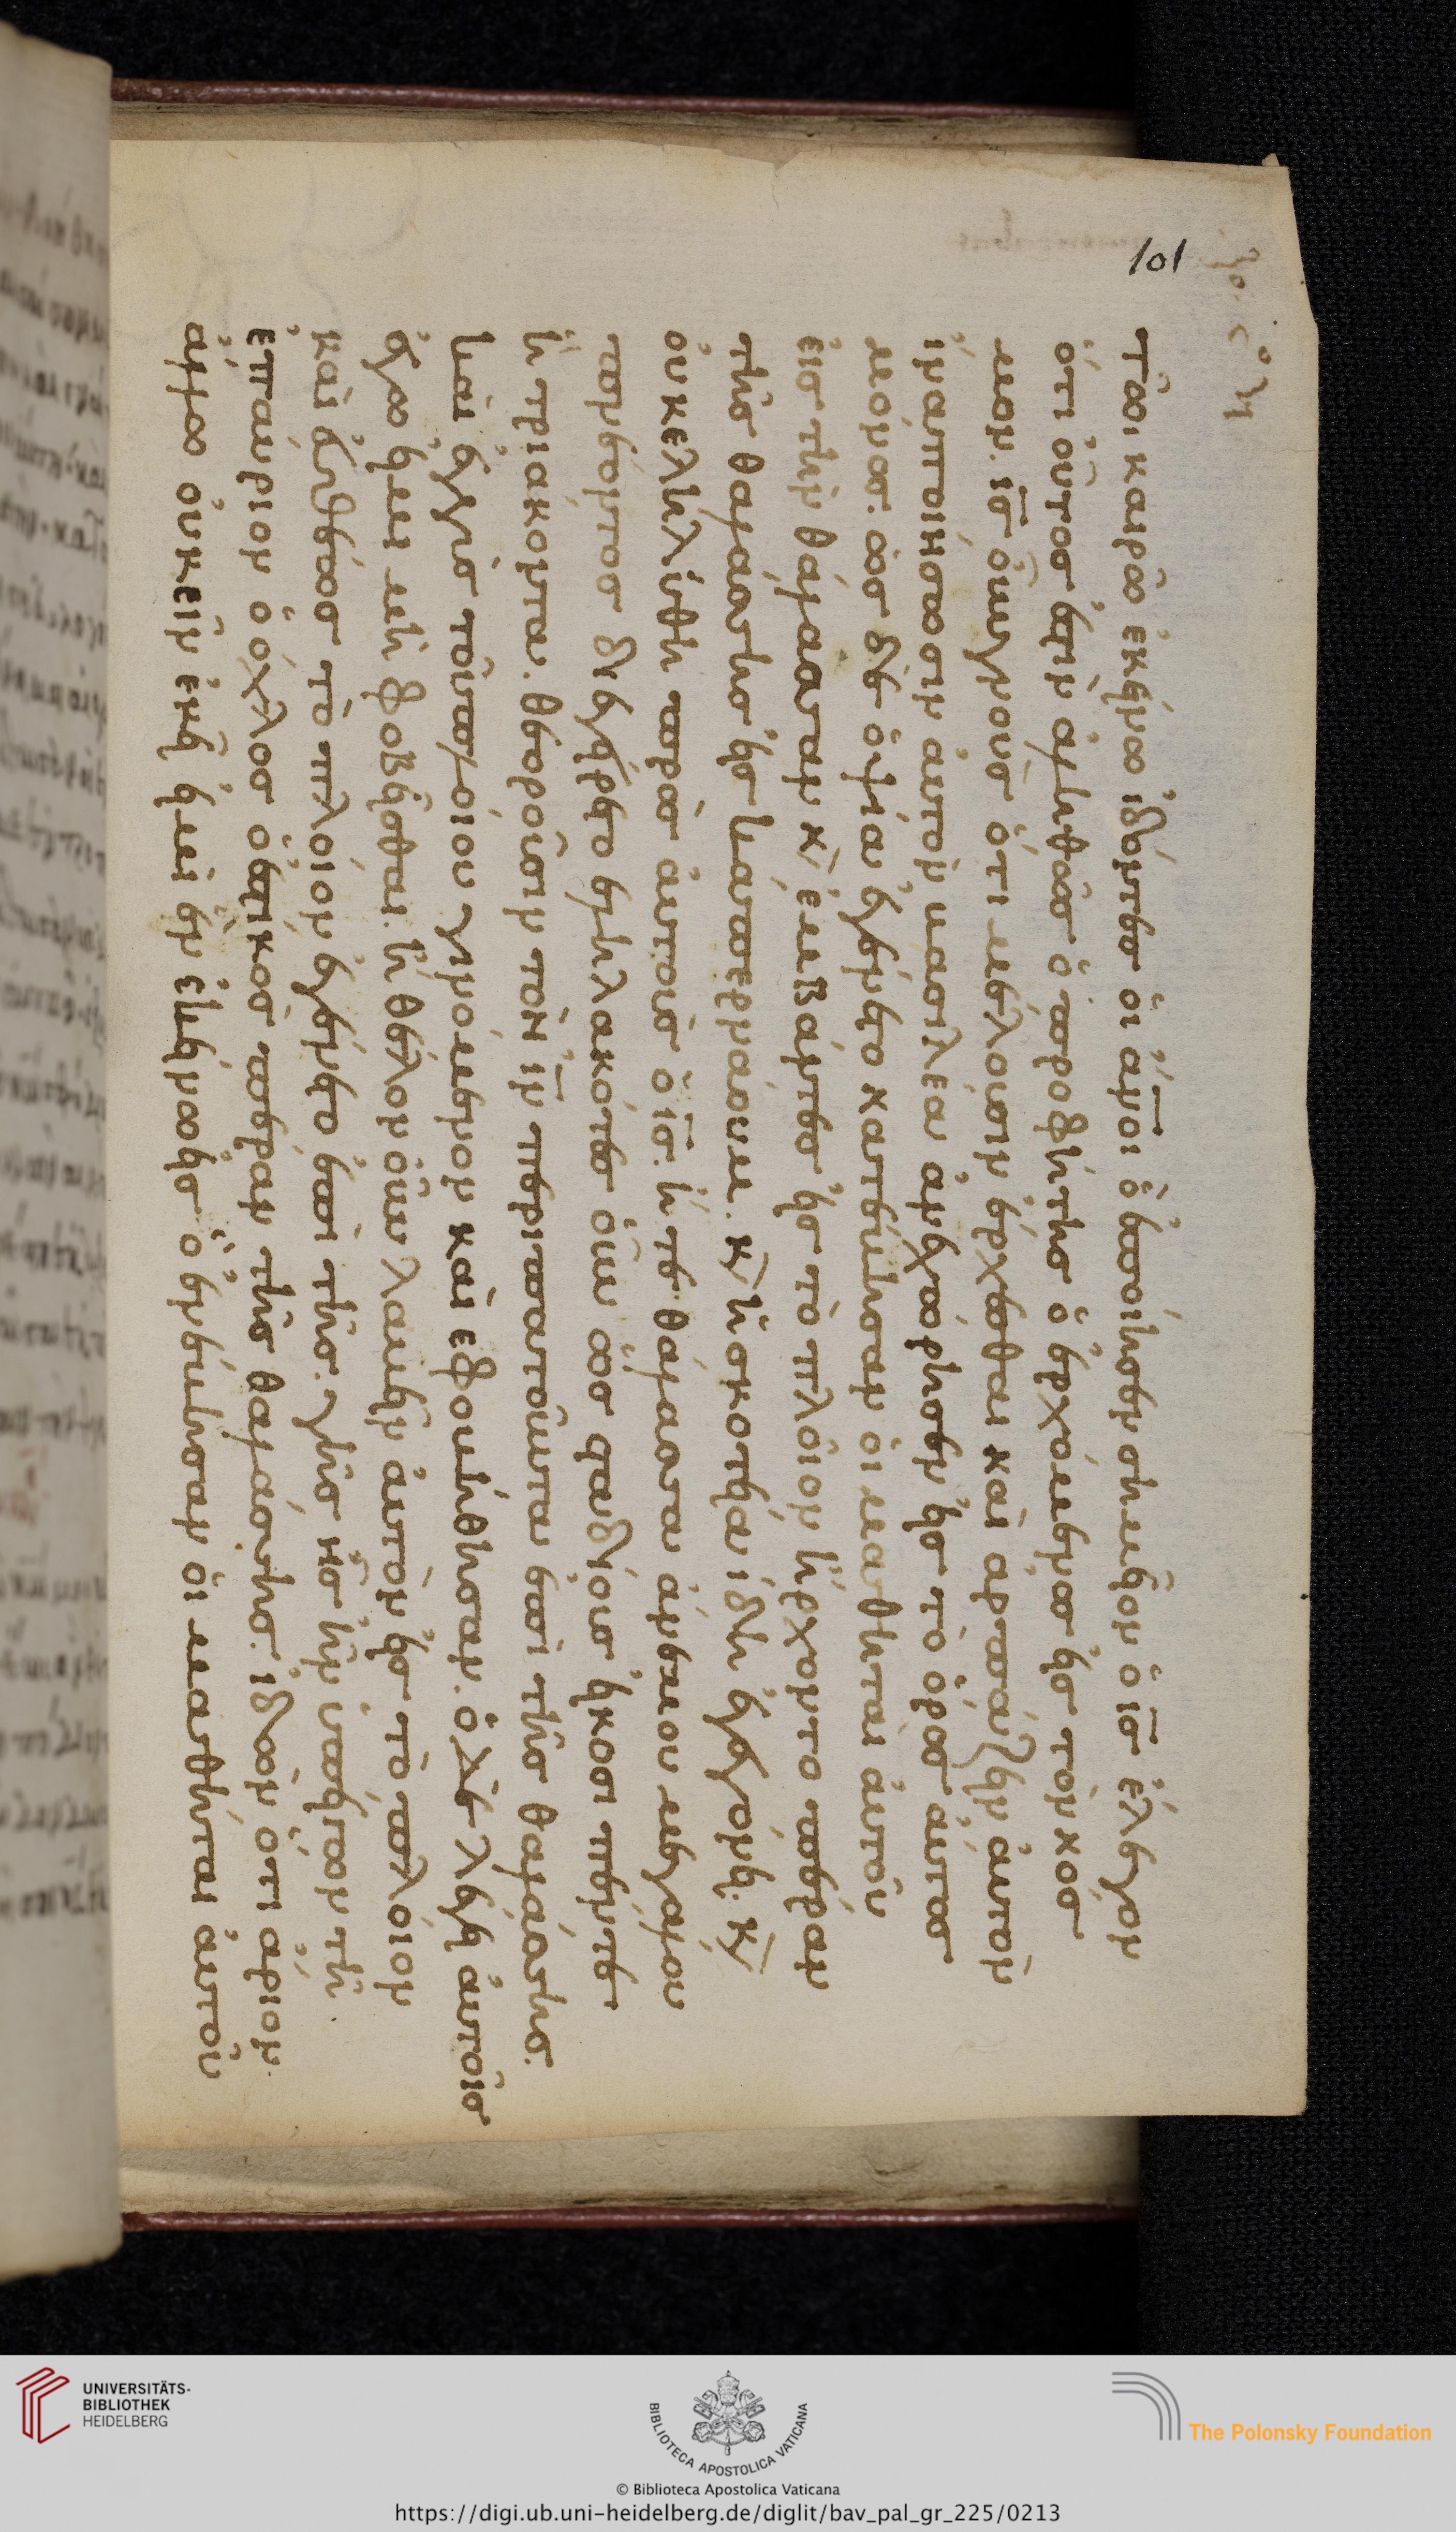 101
τῶι καιρῶ ἐκείνω ἰδόντες οἱ ἀνοι ὃ ἐποίησεν σημεῖον ὁ ισ ἔλεγον
ὅτι οὗτος ἐστὶν ἀληθῶς ὁ προφήτης ὁ ἐρχόμενος εἰς τὸν κόσ
μον. ισ οὖν γνοὺς ὅτι μέλουσιν ἔρχεσθαι καὶ ἁρπάζειν ἀυτὸν
ἵνα ποιήσωσιν ἀυτὸν βασιλέα ἀνεχώρησεν εἰς τὸ ὄρος αὐτὸς
μόνος. ὡς δὲ ὀψία ἐγένετο κατέβησαν οἱ μαθηταὶ ἀυτοῦ
εἰς τὴν θάλασσαν κ ἐμβάντες εἰς τὸ πλοῖον ἤρχοντο πέραν
τῆς θαλάσσης εἰς καπερναούμ. κ σκοτία ἤδη ἐγεγόνει. κ
οὐκ ἐληλύθη πρὸς αὐτοὺς ὁ ισ. ἥ τε θάλασσα ἀνέμου μεγάλου
πνέοντος διεγείρετο ἐληλακότες οὖν ὡς σταδίους εἴκοσι πέντε
ἢ τριάκοντα. θεοροῦσιν τὸν ιν περιπατοῦντα ἐπὶ τῆς θαλάσσης.
καὶ ἐγγὺς τοῦ πλοίου γινόμενον καὶ ἐφοβήθησαν. ὁ δὲ λέγει ἀυτοῖς
ἐγώ εἰμι μὴ φοβεῖσθαι. ἤθελον οὖν λαβεῖν ἀυτὸν εἰς τὸ πλοῖον
καὶ ἐυθέως τὸ πλοῖον ἐγένετο ἐπὶ τῆς γῆς εἰς ἣν ὑπάγων τῆ
ἐπαύριον ὁ ὄχλος ὁ ἑστικὸς πέραν τῆς θαλάσσης. ἰδὼν ὅτι
ἄλλω οὐκ εἶν ἐκεῖ εἰμὶ ἓν ἐκεῖνο εἰς ὃ ἐνέβησαν οἱ μαθηταὶ ἀυτοῦ
UNIVERSITÄTS-
BIBLIOTHEK
HEIDELBERG
BIBLIOTECA APOSTOLICA VATICANA
The Polonsky Foundation
© Biblioteca Apostolica Vaticana
https://digi.ub.uni-heidelberg.de/diglit/bav_pal_gr_225/0213